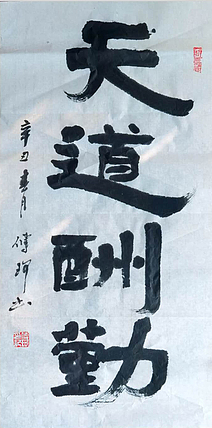 天道酬勤
辛丑春月傅珂書